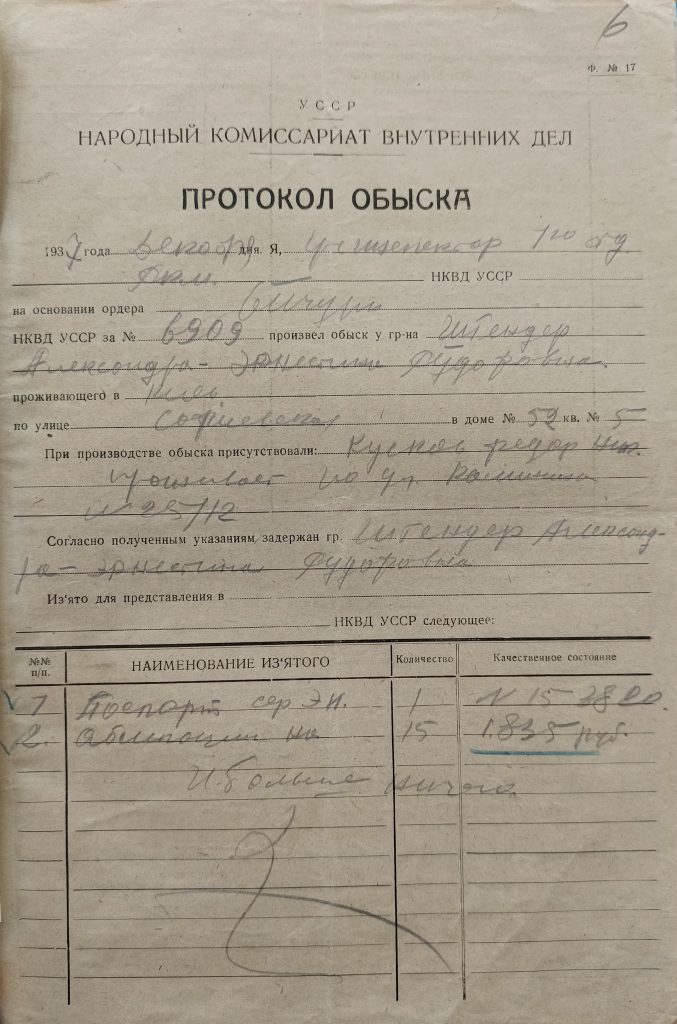 6
Ф. № 17
УССР
НАРОДНЫЙ КОМИССАРИАТ ВНУТРЕННИХ ДЕЛ
ПРОТОКОЛ ОБЫСКА
1937 года декабря дня. Я, Уч инспектор 7го отд
РКМ. НКВД УССР
на основании ордера
НКВД УССР за № 6909 произвел обыск у гр-на Штендер
Александра-Эрнестина Фудоровна
проживающего в Киев
по улице Софиевская в доме № 52 кв. № 5
При производстве обыска присутствовали: Федор
проживает по ул. Калинина
№ 25/12
Согласно полученным указаниям задержан гр. Штендер Александ-
ра-Эрнестина Фудоровна
Из'ято для представления в
НКВД УССР следующее:
№№ п/п. НАИМЕНОВАНИЕ ИЗ'ЯТОГО Количество Качественное состояние
1 Паспорт сер ЭИ. 1 N 15
2. Облигации на 15 1.835 руб.
И больше ничего.